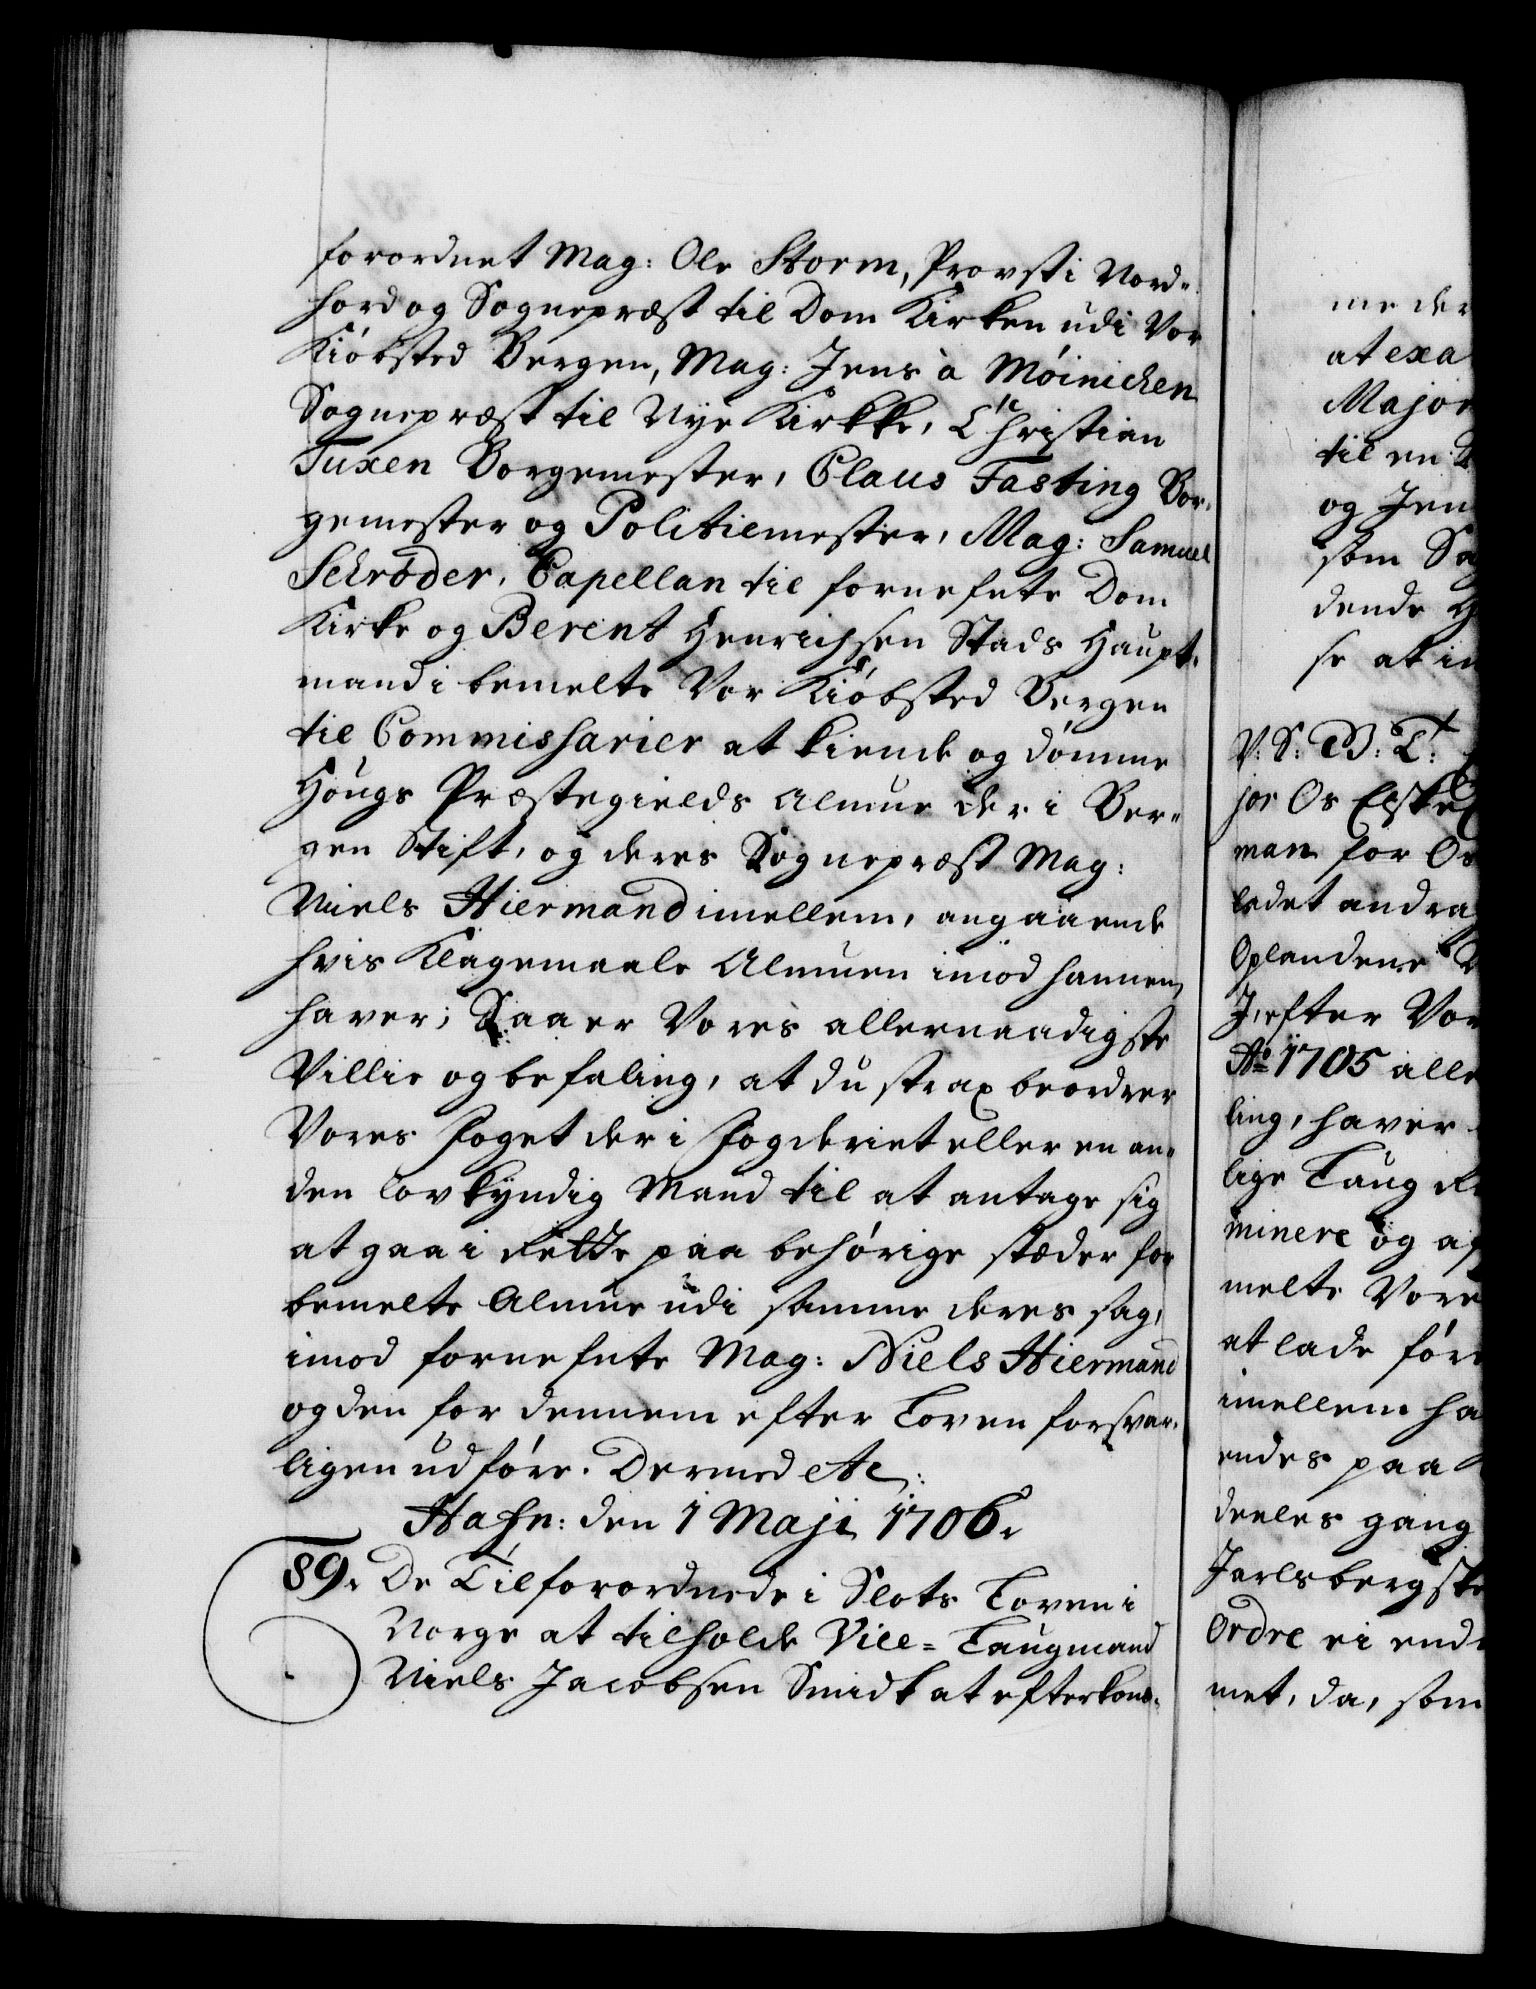 forordnet Mag: Ole Storm, Provst i Nord-
hord og Sognepræst til Dom Kirken udi Vor
Kiöbsted Bergen, Mag: Jens à Möinichen
Sognepræst til Nye Kirkke, Christian
Tuxen Borgemester, Claus Fasting Bor-
gemester og Politiemester, Mag: Samuel
Schrøder, Capellan til fornefnte Dom
Kirke og Berent Henrichsen Stads Haupt-
mand i bemelte Vor Kiöbsted Bergen
til Commissarier at kiende og dömme
Hougs Præstegields Almue der i Ber-
gen Stift, og deres Sognepræst Mag:
Niels Hiermand imellem, angaaende
hvis Klagemaale Almuen imod hannem
haver; Saa er Vores allernaadigste
Villie og befaling, at du strax beordrer
Vores foget der i fogderiet eller en an-
den lovkyndig Mand til at antage sig
at gaa i Rette paa behörige stæder for
bemelte Almue udi samme deres sag,
imod fornefnte Mag: Niels Hiermand
og den for dennem efter Loven forsvar-
ligen udföre. Dermed etc:
Hafn: den 1 Maji 1706.
89. De Tilforordnede i Slots Loven i
Norge at tilholde Vice-Laugmand
Niels Jacobsen Smidt at efterkom-
me der
at exa
Major
til en
og Jen
som Sag
dende
se at in
V: S: B: T:
jor Os
man for Os
ladet andrag
Oplandene
J, efter Vor
Ao 1705 alle
ling, haver
lige Laug
minere og af
melte Vore
at lade före
imellem ha
endes paa
deeles gang
Jarlsbergske
Ordre ei end
met, da, som